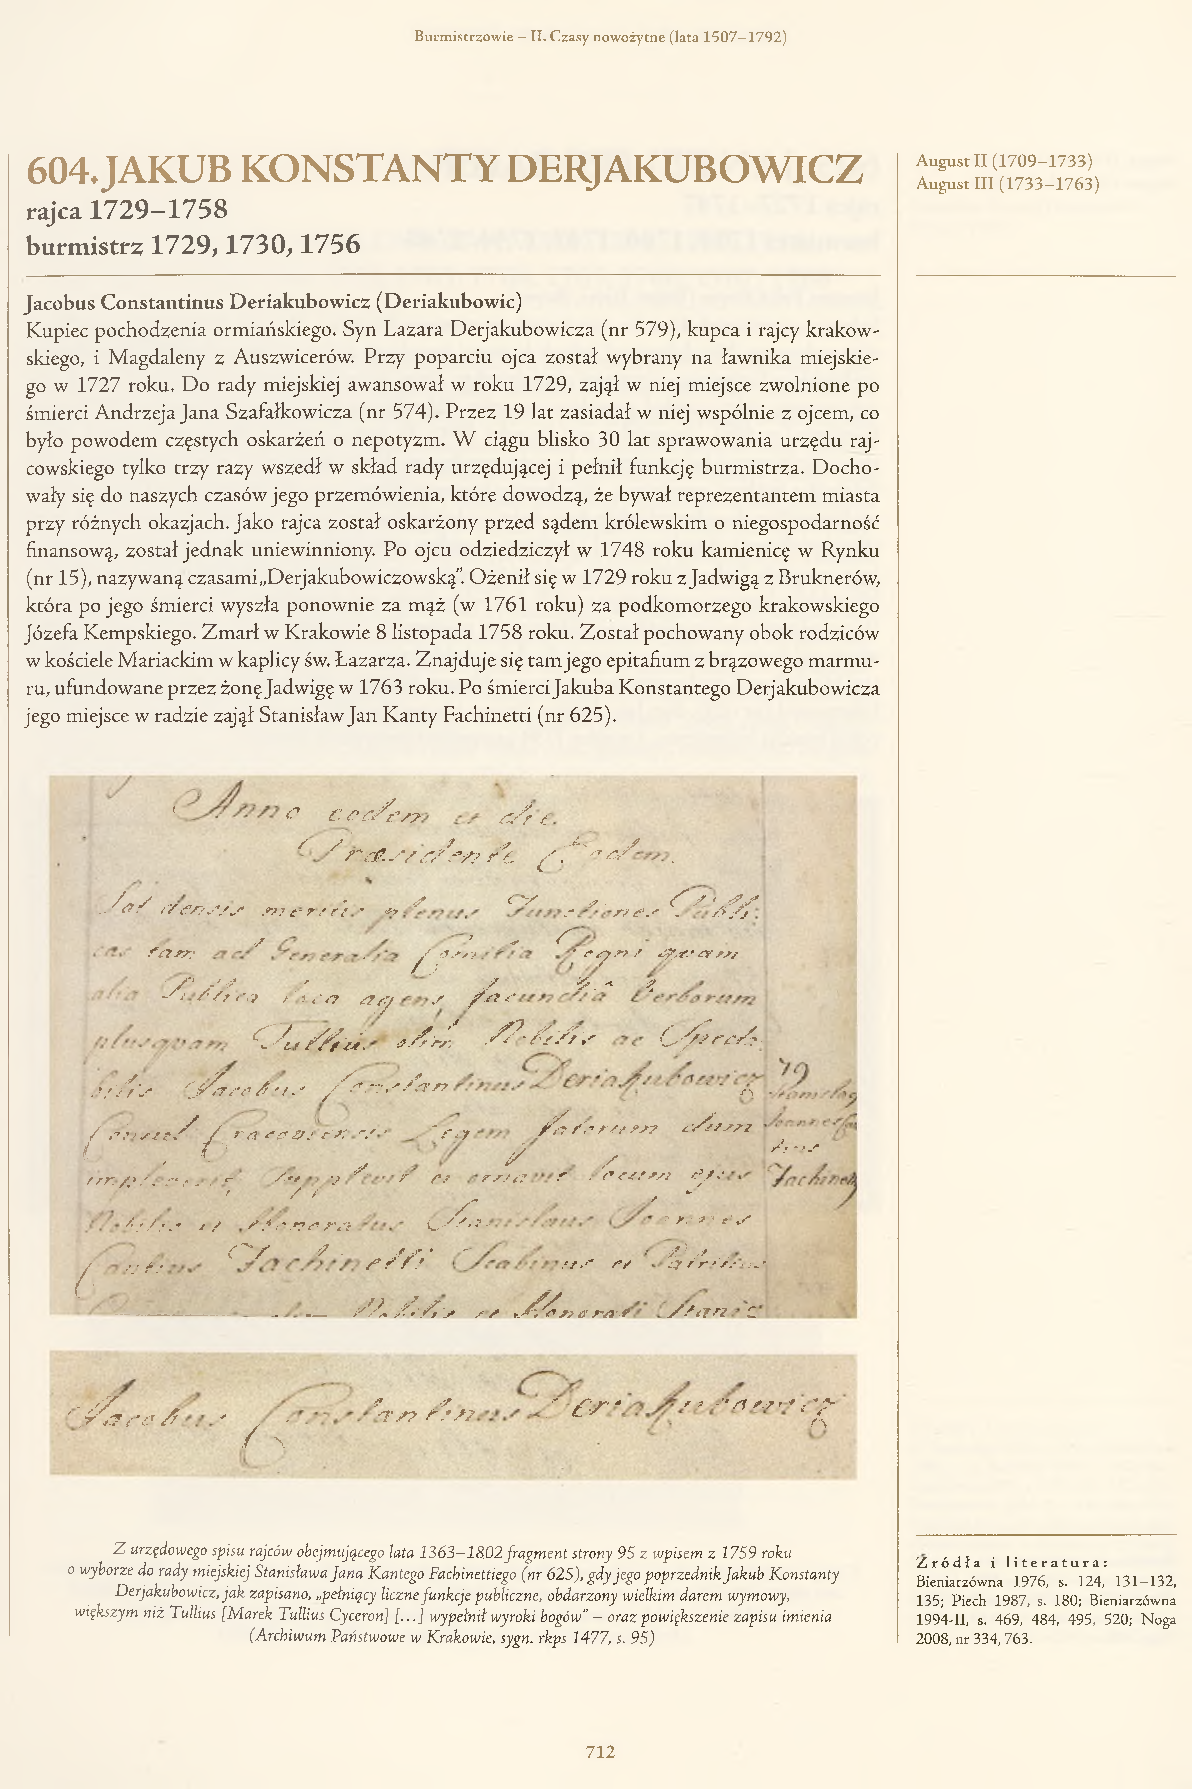 Burmistrzowie – II. Czasy nowożytne (lata 1507–1792)
604. JAKUB KONSTANTY DERJAKUBOWICZ
rajca 1729–1758
burmistrz 1729, 1730, 1756
August II (1709–1733)
August III (1733–1763)
Jacobus Constantinus Deriakubowicz (Deriakubowic)
Kupiec pochodzenia ormiańskiego. Syn Lazara Derjakubowicza (nr 579), kupca i rajcy krakow-
skiego, i Magdaleny z Auszwicerów. Przy poparciu ojca został wybrany na ławnika miejskie-
go w 1727 roku. Do rady miejskiej awansował w roku 1729, zajął w niej miejsce zwolnione po
śmierci Andrzeja Jana Szafałkowicza (nr 574). Przez 19 lat zasiadał w niej wspólnie z ojcem, co
było powodem częstych oskarżeń o nepotyzm. W ciągu blisko 30 lat sprawowania urzędu raj-
cowskiego tylko trzy razy wszedł w skład rady urzędującej i pełnił funkcję burmistrza. Docho-
wały się do naszych czasów jego przemówienia, które dowodzą, że bywał reprezentantem miasta
przy różnych okazjach. Jako rajca został oskarżony przed sądem królewskim o niegospodarność
finansową, został jednak uniewinniony. Po ojcu odziedziczył w 1748 roku kamienicę w Rynku
(nr 15), nazywaną czasami „Derjakubowiczowską”. Ożenił się w 1729 roku z Jadwigą z Bruknerów,
która po jego śmierci wyszła ponownie za mąż (w 1761 roku) za podkomorzego krakowskiego
Józefa Kempskiego. Zmarł w Krakowie 8 listopada 1758 roku. Został pochowany obok rodziców
w kościele Mariackim w kaplicy św. Łazarza. Znajduje się tam jego epitafium z brązowego marmu-
ru, ufundowane przez żonę Jadwigę w 1763 roku. Po śmierci Jakuba Konstantego Derjakubowicza
jego miejsce w radzie zajął Stanisław Jan Kanty Fachinetti (nr 625).
Anno eodem et die.
Præsidente Eodem.
Sat densis meritis plenus Functiones Publi:
cas tam ad Generalia Comitia Regni quam
alia Publica loca agens, facundiâ Verborum
plusquam Tullius olim Nobilis ac Specta
bilis Jacobus Constantinus Deriakubowicz
Consul Cracoviensis Legem fatorum dum
impleverit, Supplevit et ornavit locum ejus
Nobilis et Honoratus Stanislaus Joannes
Cantius Fachinetti Scabinus et Patritius
Nobilis et Honorati Stanis
79
Stanislaq
Joannes Ca
tius
Fachinetti
Jacobus Constantinus Deriakubowicz
Z urzędowego spisu rajców obejmującego lata 1363–1802 fragment strony 95 z wpisem z 1759 roku
o wyborze do rady miejskiej Stanisława Jana Kantego Fachinettiego (nr 625), gdy jego poprzednik Jakub Konstanty
Derjakubowicz, jak zapisano, „pełniący liczne funkcje publiczne, obdarzony wielkim darem wymowy,
większym niż Tullius [Marek Tullius Cyceron] [...] wypełnił wyroki bogów” – oraz powiększenie zapisu imienia
(Archiwum Państwowe w Krakowie, sygn. rkps 1477, s. 95)
Źródła i literatura:
Bieniarzówna 1976, s. 124, 131–132,
135; Piech 1987, s. 180; Bieniarzówna
1994-II, s. 469, 484, 495, 520; Noga
2008, nr 334, 763.
712